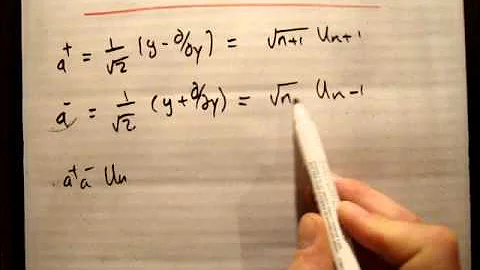 a⁺ = 1/√2 (y - ∂/∂y) = √n+1 Un+1
a⁻ = 1/√2 (y + ∂/∂y) = √n Un-1
a⁺a⁻ Un